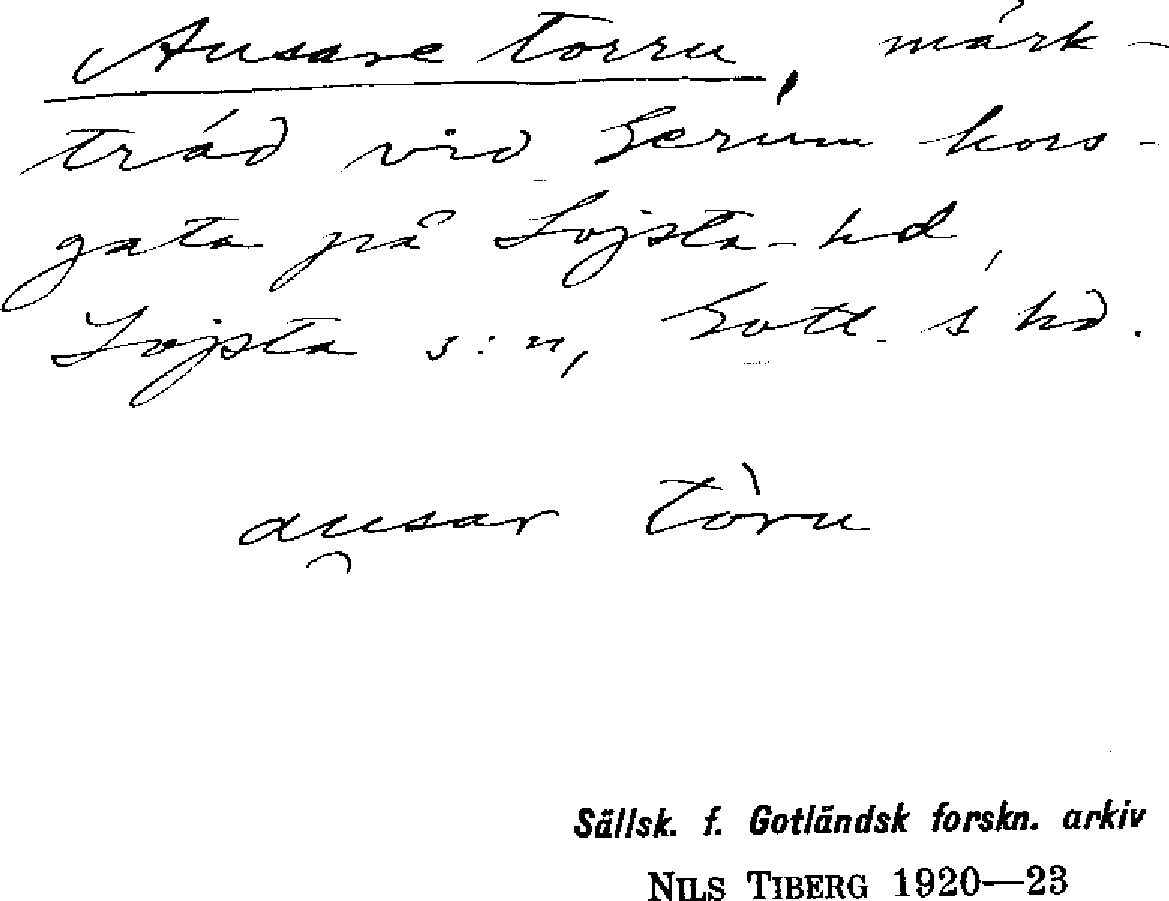 Ausare torru, märk-
träd vid Gerum kors-
gata på Lojsta-hd,
Lojsta s:n, Gotl. s hd.
ausar tòru
Sällsk. f. Gotländsk forskn. arkiv
NILS TIBERG 1920—23